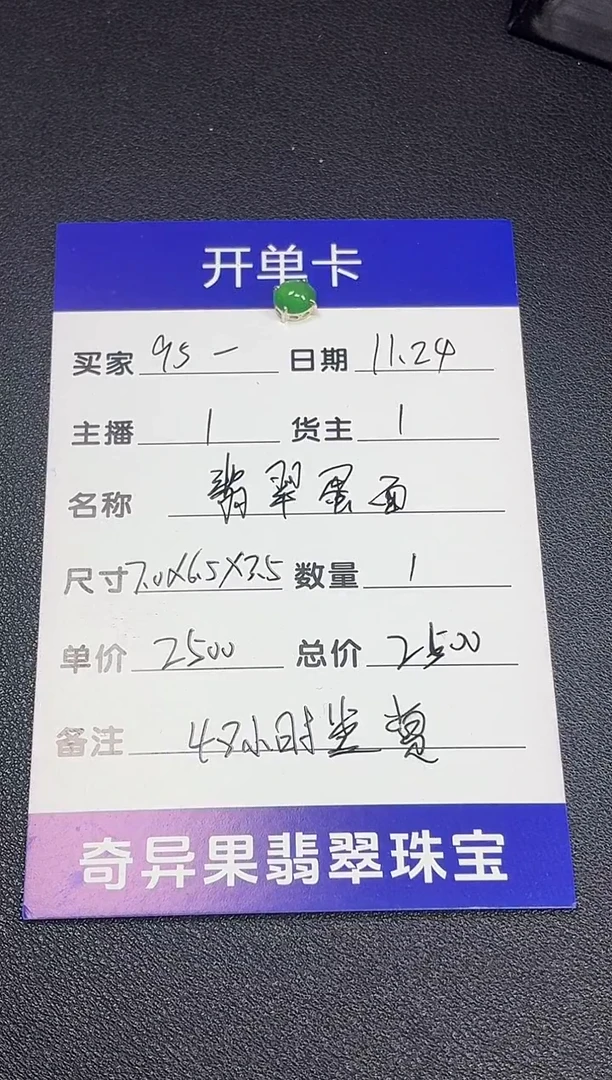 开单卡
买家 95一 日期 11.24
主播 1 货主 1
名称 翡翠蛋面
尺寸 7.0X6.5X3.5 数量 1
单价 2500 总价 2500
备注 48小时鉴赏
奇异果翡翠珠宝